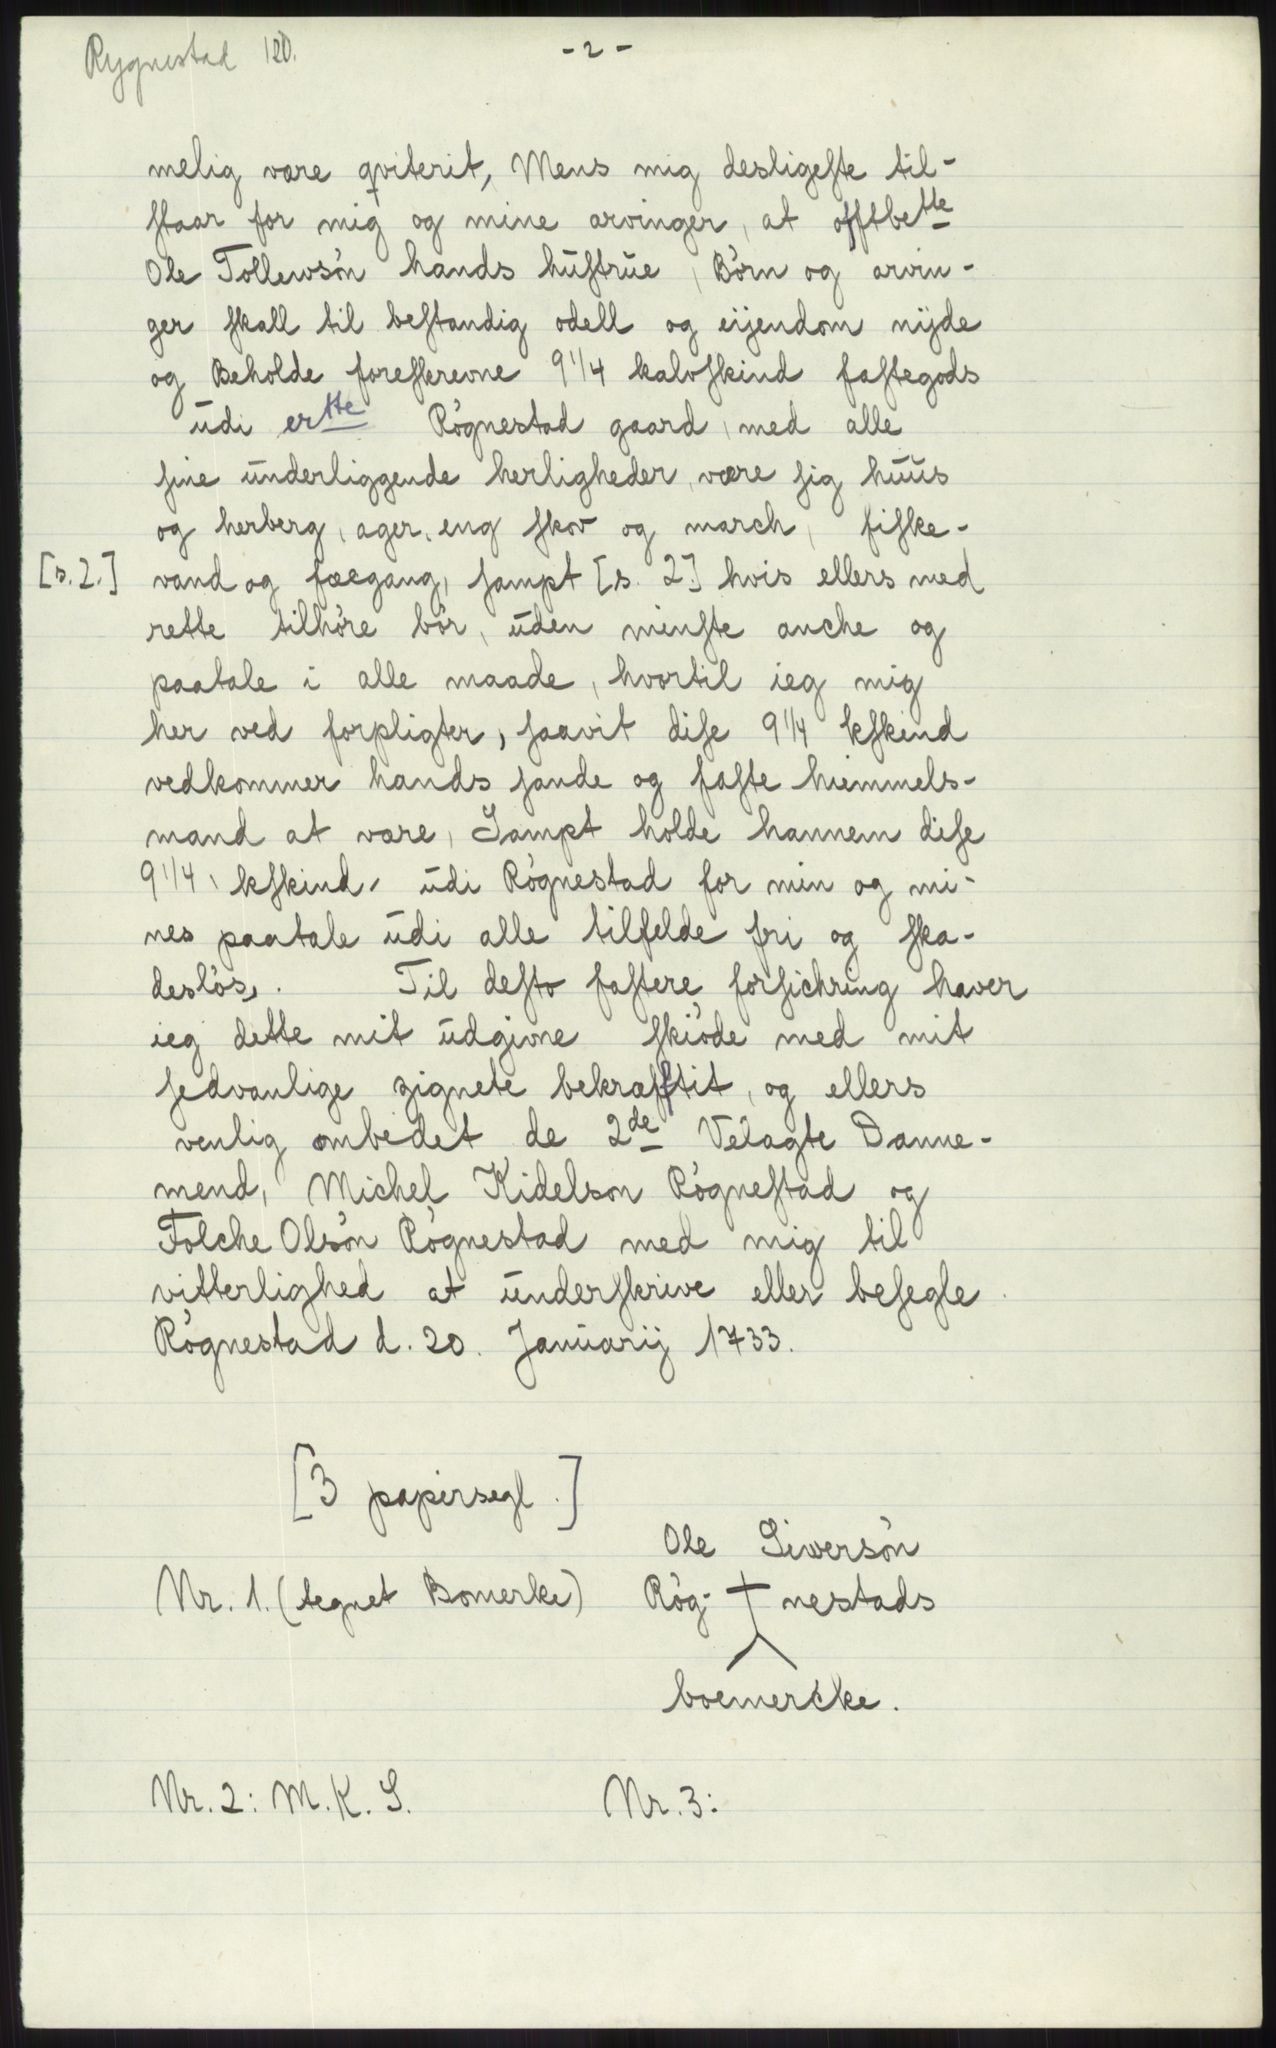 Rygnestad 120.
- 2 -
melig være qviterit, Mens mig desligeste til-
staar for mig og mine arvinger, at offtbette
Ole Tollewsön hands hustrue, Börn og arvin-
ger skall til bestandig odell og eijendom nijde
og Beholde foreskrevne 9 1/4 kalvskind fastegods
udi ertte Rögnestad gaard, med alle
sine underliggende herligheder, være sig huus
og herberg, ager, eng skov og march, fiske-
[s. 2.] vand og fœgang, sampt [s. 2.] hvis ellers med
rette tilhöre bör, uden minste anche og
paatale i alle maade, hvortil ieg mig
her ved forpligter, saavit dise 9 1/4 kskind
vedkommer hands sande og faste hiemmels-
mand at være, Sampt holde hannem dise
9 1/4, kskind, udi Rögnestad for min og mi-
nes paatale udi alle tilfelde fri og ska-
deslös,. Til desto fastere forsichring haver
ieg dette mit udgivne skiöde med mit
sedvanlige zignete bekræfftit, og ellers
venlig ombedet de 2de Velagte Danne-
mend, Michel Kidelson Rögnestad og
Folche Olsön Rögnestad med mig til
vitterlighed at underskrive eller besegle
Rögnestad d. 20. Januarij 1733.
[3 papirsegl.]
Ole Siwersön
Nr. 1. (tegnet Bomerke) Rög- nestads
boemercke.
Nr. 2: M. K. S. Nr. 3: